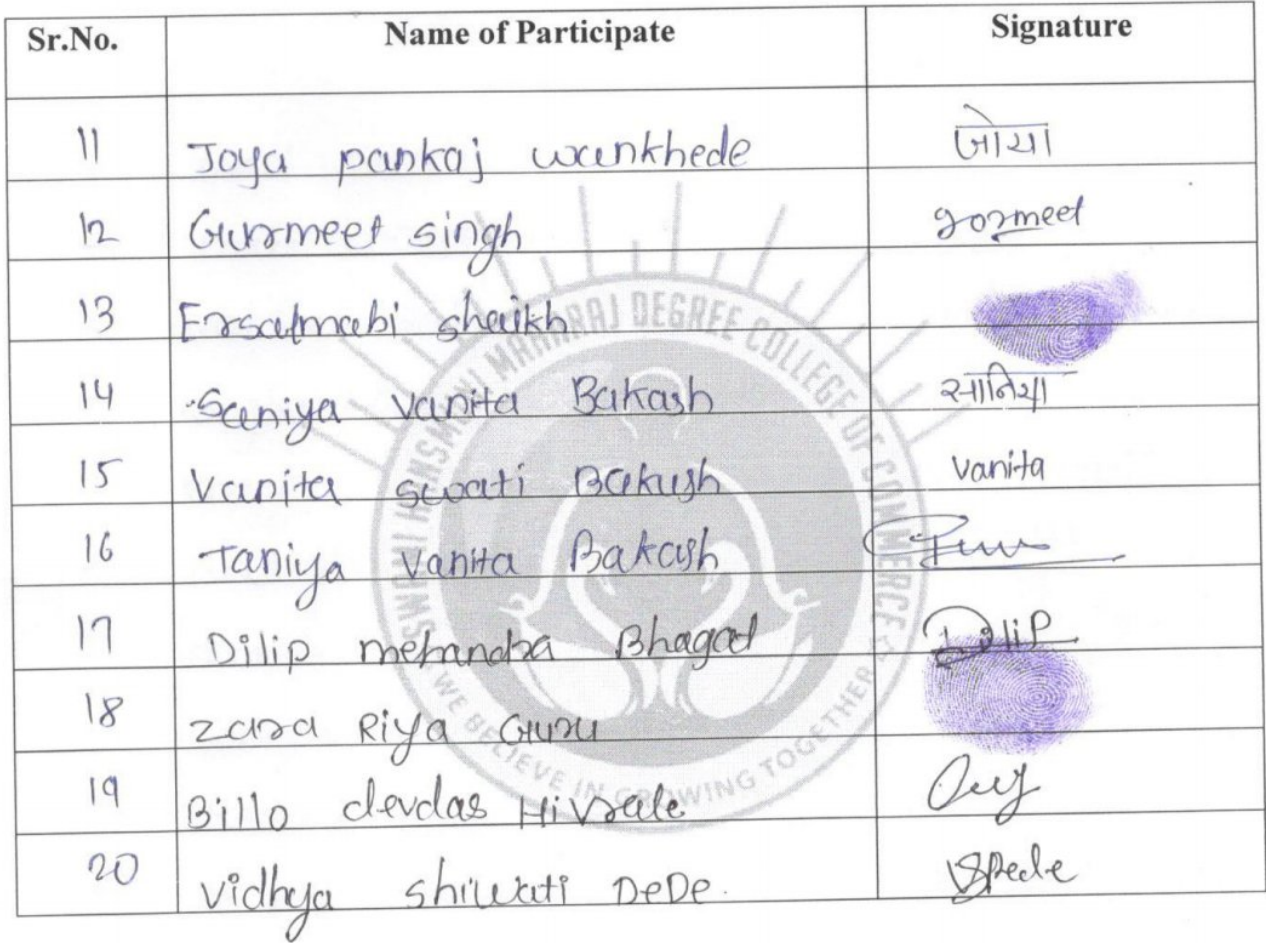 Sr.No. Name of Participate Signature
11 Joya pankaj wankhede जोया
12 Gurmeet singh gormeet
13 Ersalmabi shaikh
14 Saniya Vanita Bakash सानिया
15 Vanita swati Bakash Vanita
16 Taniya Vanita Bakash
17 Dilip mehandra Bhagat Dilip
18 zara Riya Guru
19 Billo devdas Hivrale
20 Vidhya shiwati DeDe.
SWAMI HANSMUNI MAHARAJ DEGREE COLLEGE OF COMMERCE
WE BELIEVE IN GROWING TOGETHER